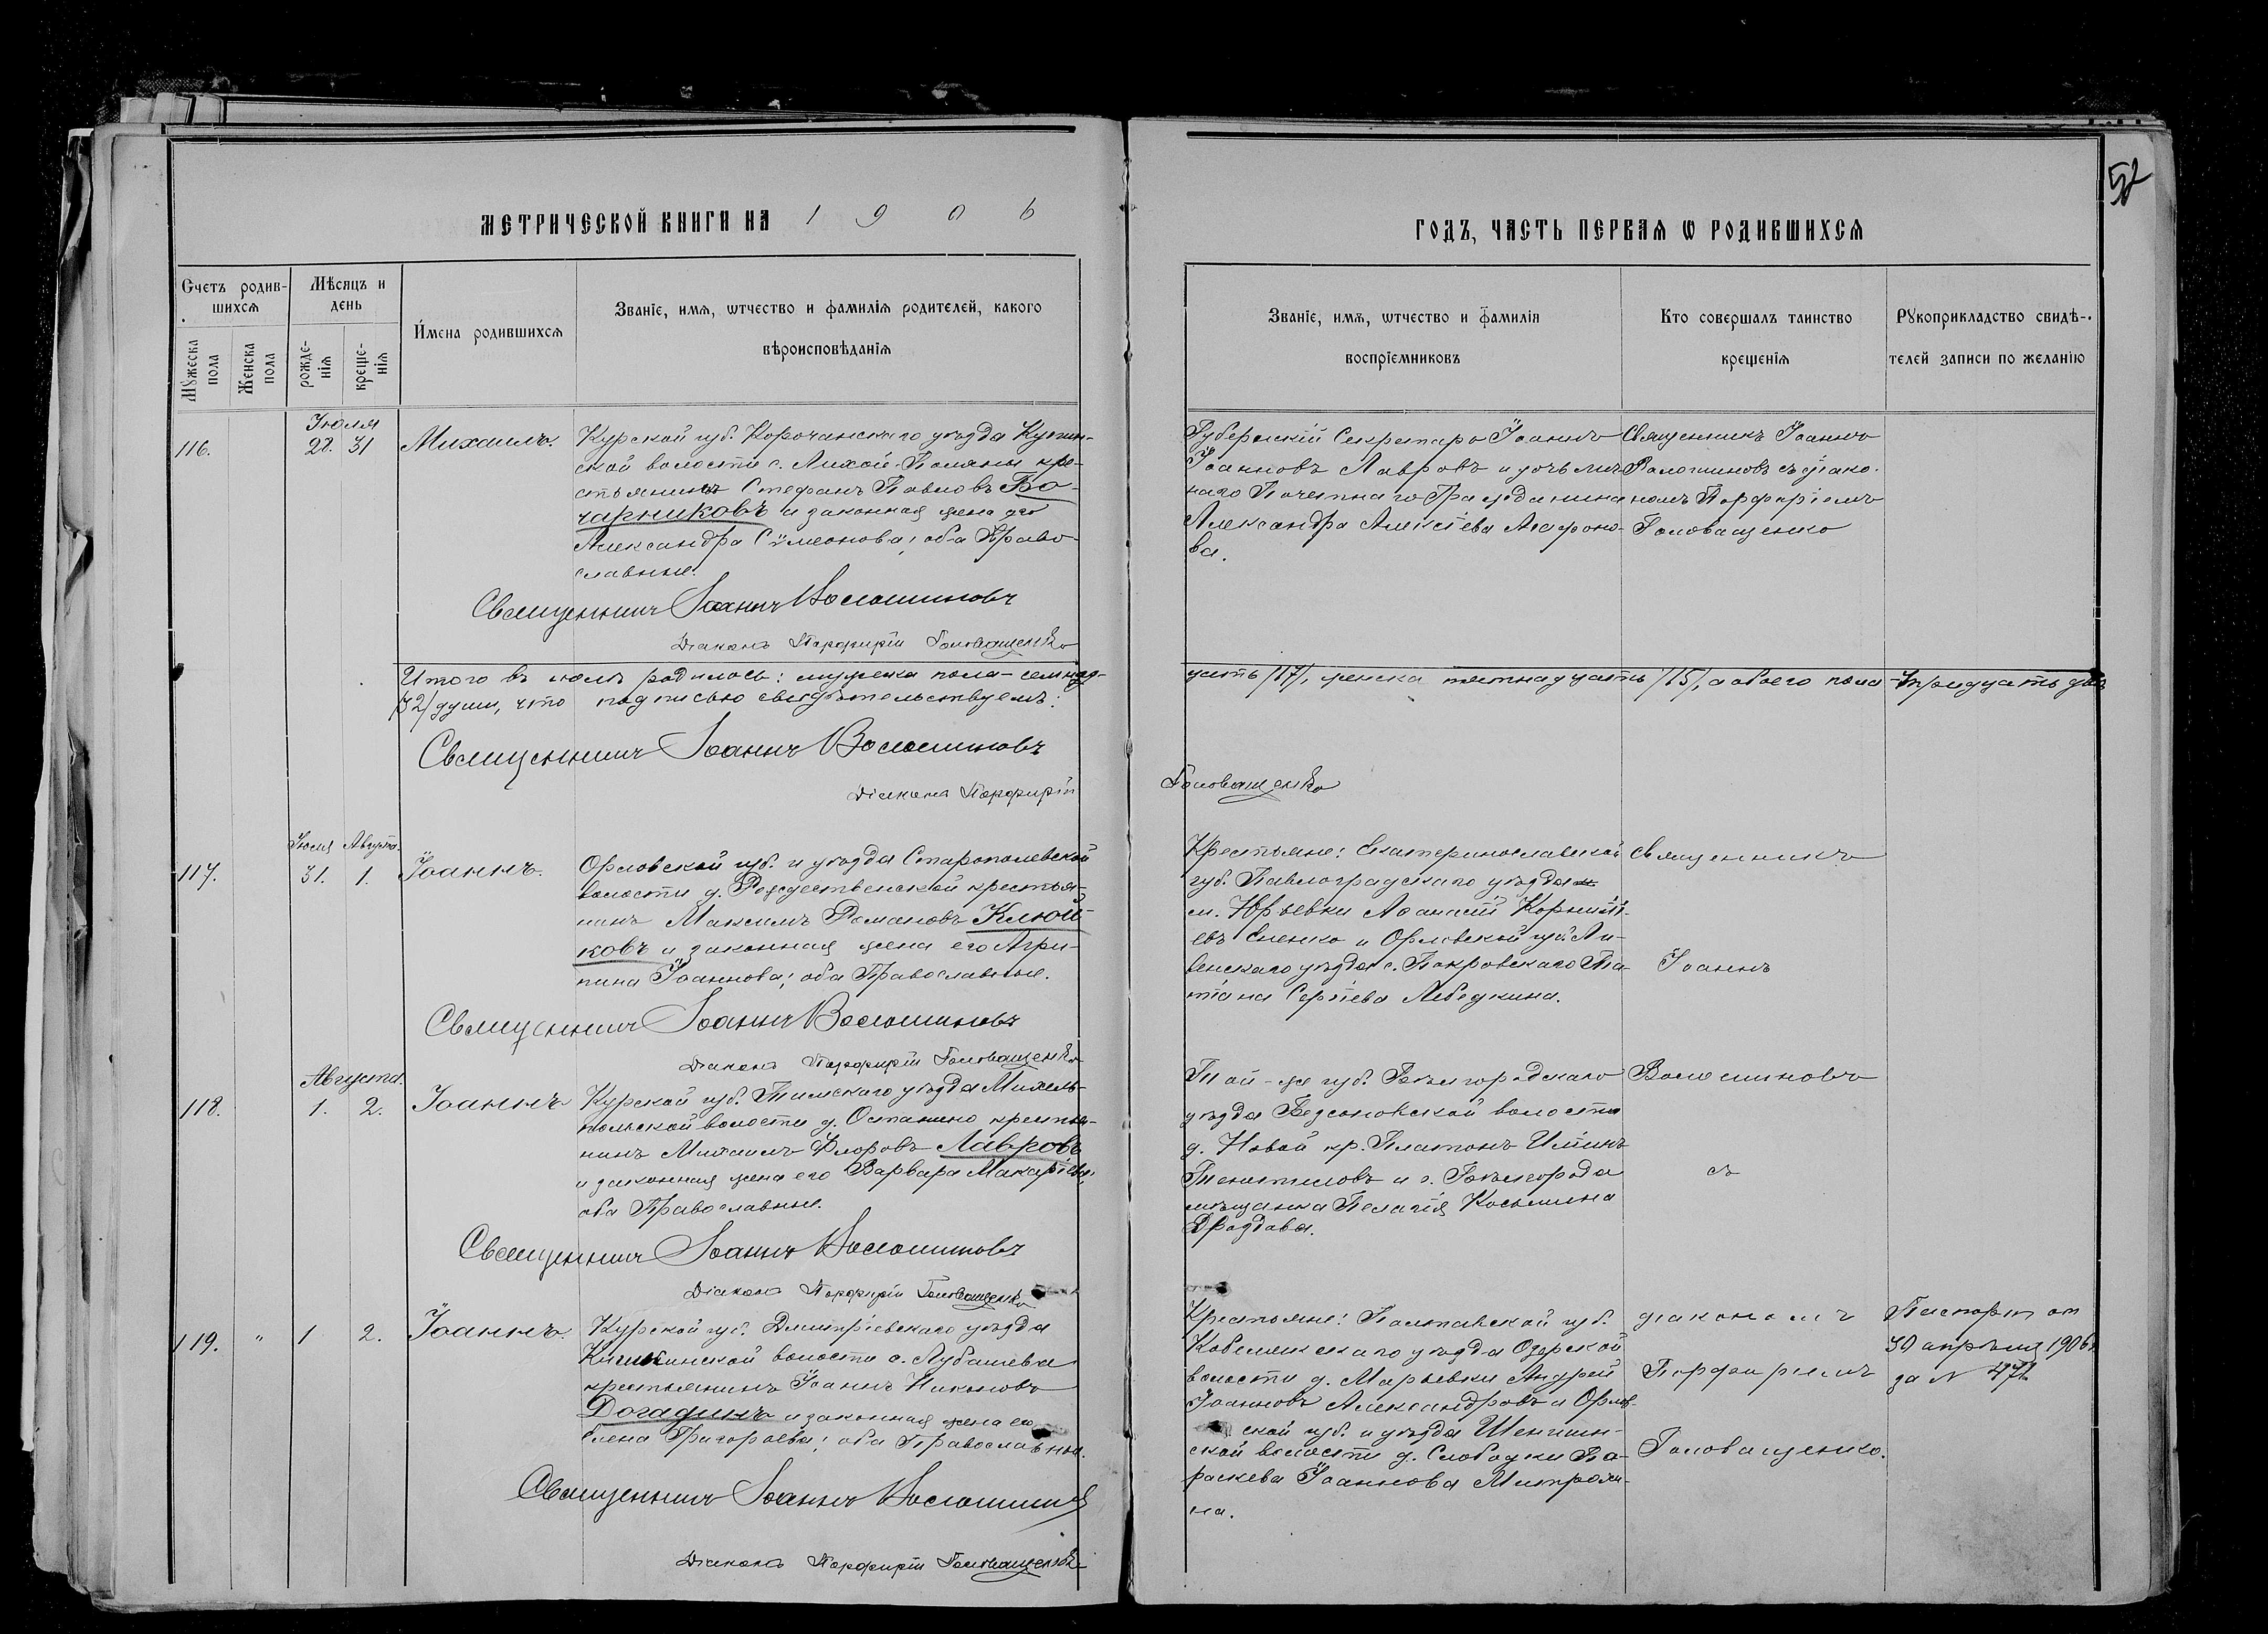 52
МЕТРИЧЕСКОЙ КНИГИ НА 1906
ГОДЪ, ЧАСТЬ ПЕРВАЯ Ѡ РОДИВШИХСЯ
Счетъ родив-
шихся
Мѣсяцъ и
день
Мꙋжеска
пола
Женска
пола
рожде-
нія
креще-
нія
Имена родившихся
Званіе, имя, ѡтчество и фамилія родителей, какого
вѣроисповѣданія
Званіе, имя, ѡтчество и фамилія
воспріемниковъ
Кто совершалъ таинство
крещенія
Рꙋкоприкладство свидѣ-
телей записи по желанію
Іюля
116. 28. 31 Михаилъ.
Курской губ. Корочанскаго уѣзда Купин-
ской волости с. Лихой-Поляны кре-
стьянинъ Стефанъ Павловъ Бо-
чарниковъ и законная жена его
Александра Сѵмеонова; оба Право-
славные.
Священникъ Іоаннъ Волошиновъ
Діаконъ Порфирій Головащенко
Губернскій Секретарь Іоаннъ
Іоанновъ Лавровъ и дочь лич-
наго Почетнаго Гражданина
Александра Алексіева Агафоно-
ва.
Священникъ Іоаннъ
Волошиновъ съ діако-
номъ Порфиріемъ
Головащенко
Итого въ іюлѣ родилось: мужеска пола - семнад-
цать /17/, женска пятнадцать /15/, а обоего пола - тридцать два
/32/ души, что подписью свидѣтельствуемъ:
Священникъ Іоаннъ Волошиновъ
Діаконъ Порфирій Головащенко
Іюля Августа
117. 31. 1. Іоаннъ.
Орловской губ. и уѣзда Старополевской
волости д. Рождественской крестья-
нинъ Максимъ Романовъ Клюй-
ковъ и законная жена его Агри-
пина Іоаннова; оба Православные.
Священникъ Іоаннъ Волошиновъ
Діаконъ Порфирій Головащенко
Крестьяне: Екатеринославской
губ. Павлоградскаго уѣзда
м. Юрьевки Аѳанасій Корнилі-
евъ Сненко и Орловской губ. Ли-
венскаго уѣзда с. Покровскаго Та-
тіана Сергіева Лебедкина.
Священникъ
Іоаннъ
Августа.
118. 1. 2. Іоаннъ
Курской губ. Тимскаго уѣзда Михель-
польской волости д. Останино крестья-
нинъ Михаилъ Флоровъ Лавровъ
и законная жена его Варвара Макаріева;
оба Православные.
Священникъ Іоаннъ Волошиновъ
Діаконъ Порфирій Головащенко
Той-же губ. Бѣлгородскаго
уѣзда Бессоновской волости
д. Новой кр. Платонъ Иліинъ
и г. Бѣлгорода
мѣщанка Пелагія Косьмина
Дроздова.
Волошиновъ
съ
119. " 1 2. Іоаннъ.
Курской губ. Дмитріевскаго уѣзда
волости с. Лубашевка
крестьянинъ Іоаннъ Никоновъ
Догадинъ и законная жена его
Елена Григорьева; оба Православные.
Священникъ Іоаннъ Волошиновъ
Діаконъ Порфирій Головащенко
Крестьяне: Полтавской губ.
Кобелякскаго уѣзда Озерской
волости д. Марьевки Андрей
Іоанновъ Александровъ и Орлов-
ской губ. и уѣзда Шеншин-
ской волости д. Слободки Па-
раскева Іоаннова Митрохи-
на.
діакономъ
Порфиріемъ
Головащенко.
Паспортъ отъ
30 апрѣля 1906 г.
за № 472